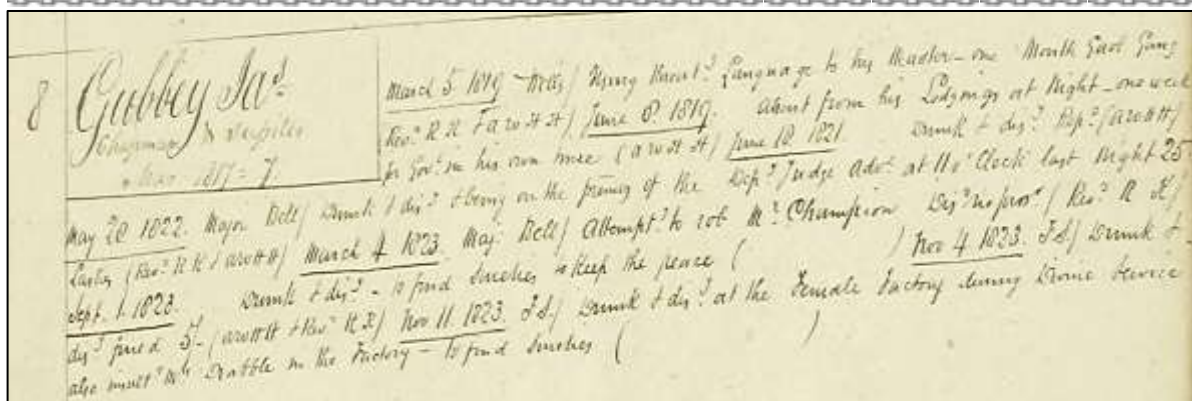 8 Gubbey Jas.
March 5 1819 Mills / Using threat.g Language to his Master – one Month Gaol Gang
Rev.d R K & AWHH / June 8. 1819. Absent from his Lodgings at Night – one week
for Gov.t in his own time (AWHH / June 18 1821 Drunk & dis.y Rep.d (AWHH)
1817 = 7
May 20 1822. Major Bell / Drunk & dis.y & being on the premises of the Dep.y Judge Adv. at 11 o'Clock last Night 25
Lashes (Rev.d R K & AWHH / March 4 1823 Maj. Bell / Attempt.g to rob Mr. Champion Dis.d no pros.r / Rev.d R K /
Sept. 1. 1823. Drunk & dis.y – to find Sureties to keep the peace ( ) Nov 4. 1823. I.S / Drunk &
dis.y fined 5/- (AWHH & Rev.d R K / Nov 11. 1823. I.S / Drunk & dis.y at the Female Factory during Divine Service
also insult.g Mrs Drabble in the Factory – to find Sureties ( )